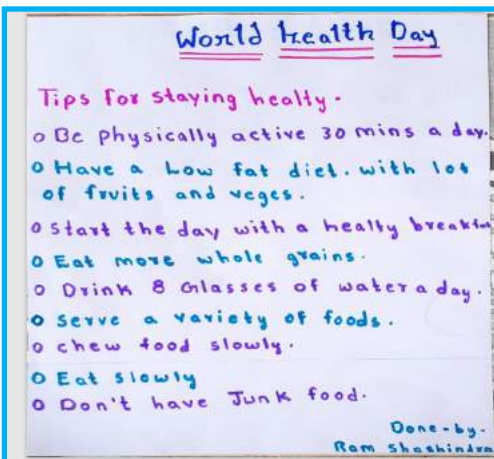 World health Day
Tips for staying healty.
o Be physically active 30 mins a day.
o Have a Low fat diet. with lot
of fruits and veges.
o Start the day with a healty breakfas
o Eat more whole grains.
o Drink 8 Glasses of water a day.
o Serve a variety of foods.
o chew food slowly.
o Eat slowly
o Don't have Junk food.
Done-by.
Ram Shashindra